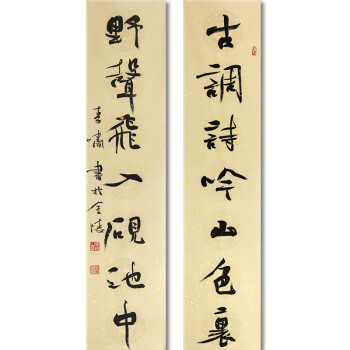 古調詩吟山色裏
野聲飛入硯池中
嘯書於金陵